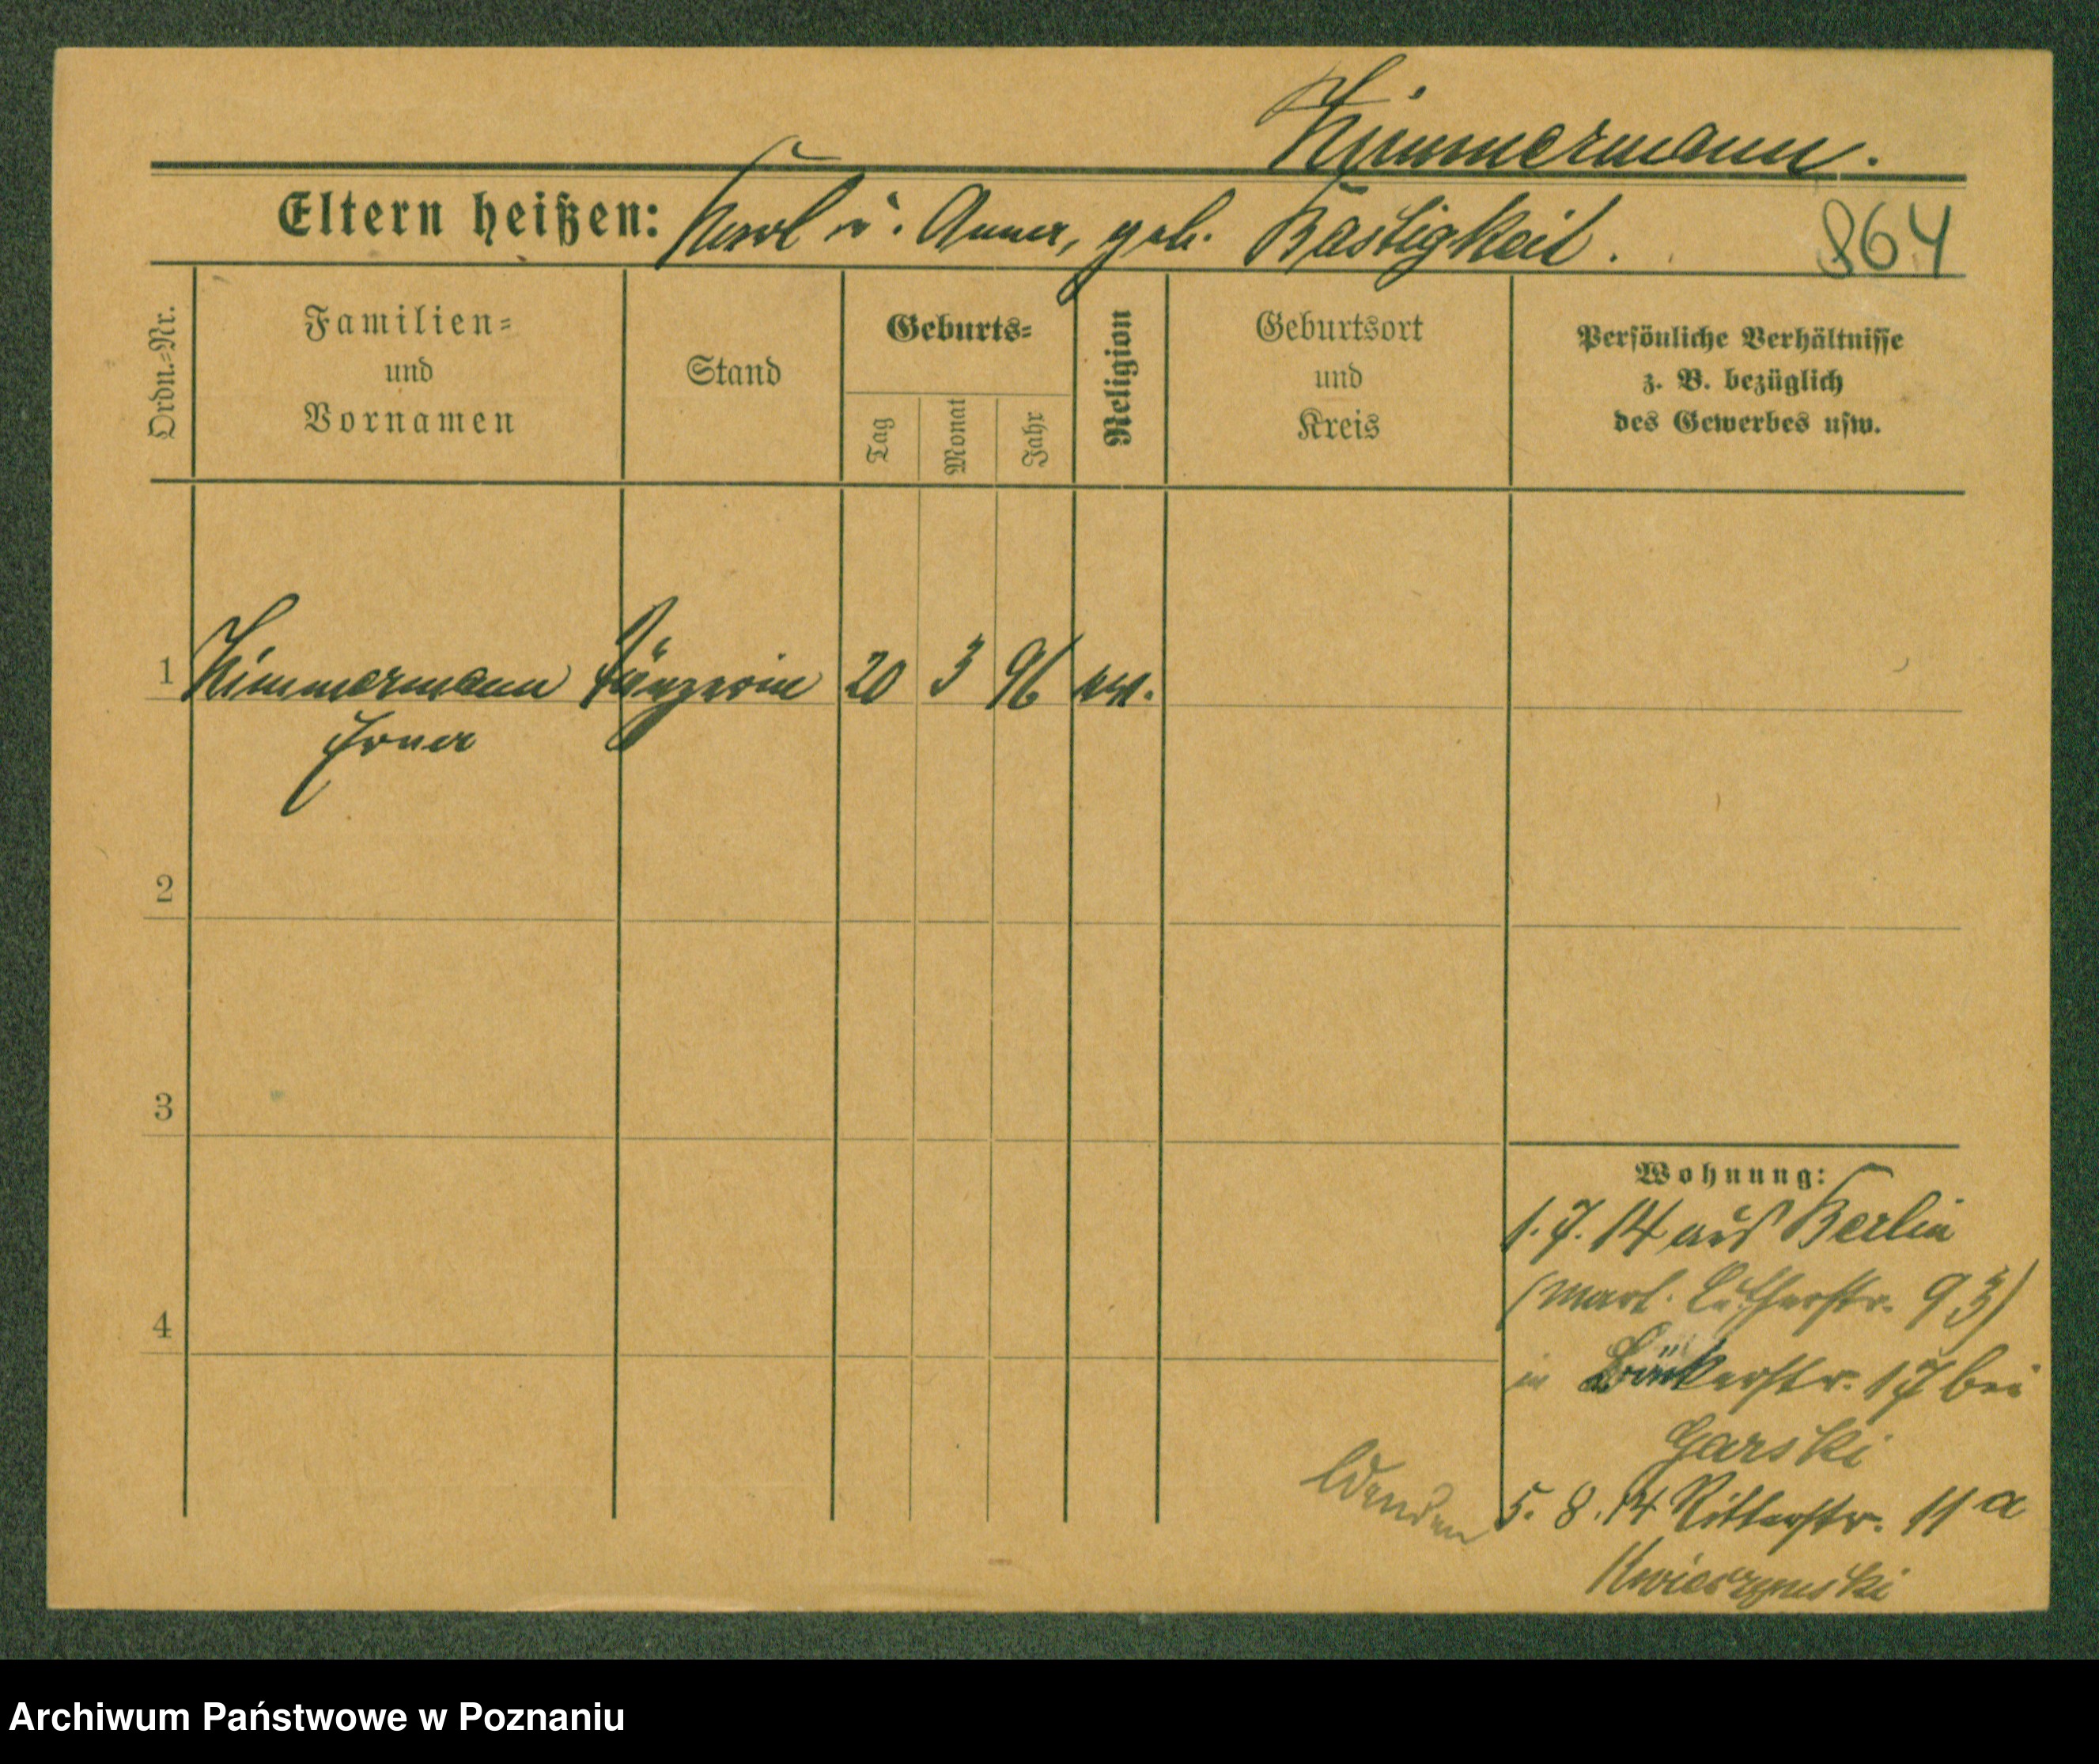 Zimmermann.
Eltern heißen: Karl u. Anna, geb. Bastigkeit.
864
Ordn.=Nr.
Familien=
und
Vornamen
Stand
Geburts=
Tag
Monat
Jahr
Religion
Geburtsort
und
Kreis
Persönliche Verhältnisse
z. B. bezüglich
des Gewerbes usw.
1 Zimmermann Tänzerin 20 3 96 ev.
Erna
2
3
4
Wohnung:
1. 7. 14 aus Berlin
(Mart. Lutherstr. 93)
in Bäckerstr. 17 bei
Garski
5. 8. 14 Ritterstr. 11 a
Wenden
Archiwum Państwowe w Poznaniu